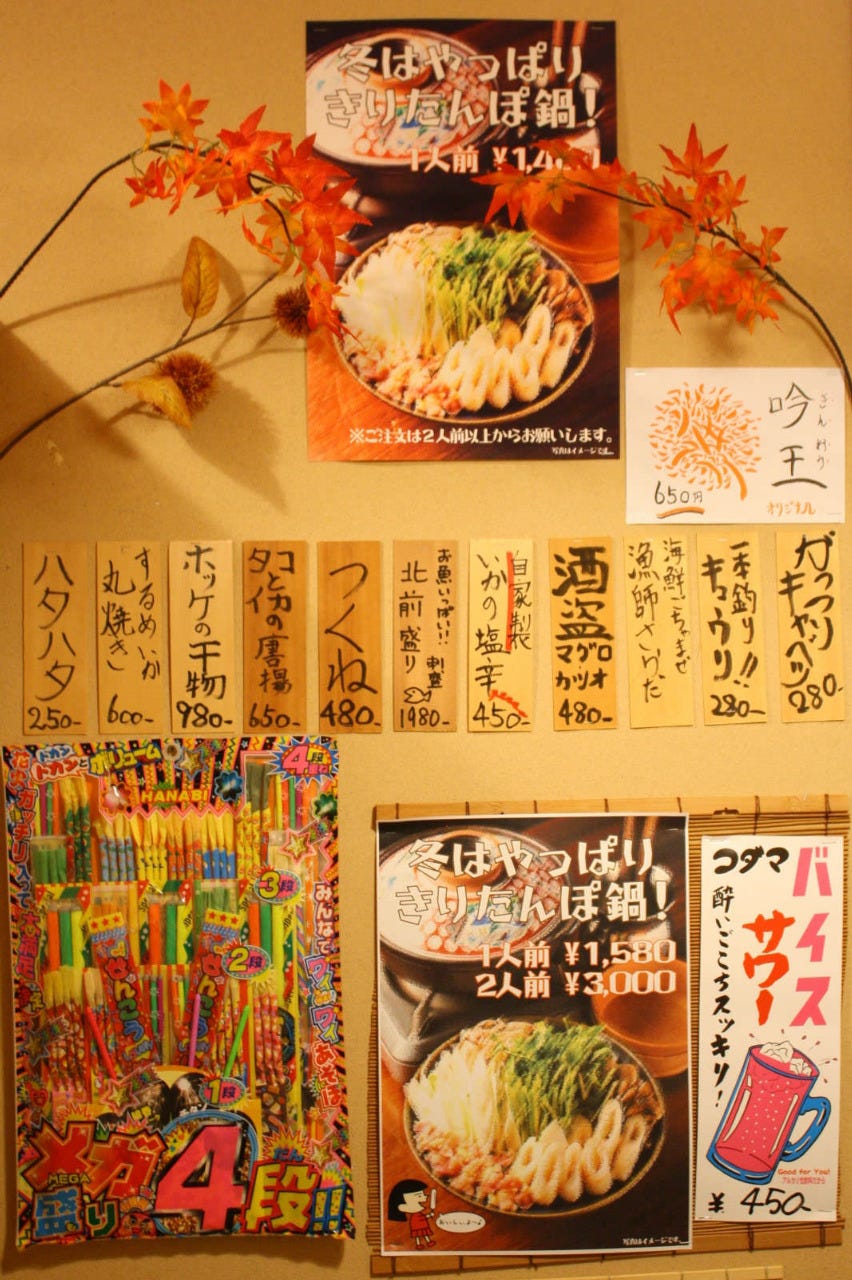 冬はやっぱり
きりたんぽ鍋!
1人前
※ご注文は2人前以上からお願いします。
写真はイメージです。
ぎん
吟王
650円
オリジナル
ハタハタ
250-
するめいか
丸焼き
600-
ホッケの干物
980-
タコとイカの唐揚
650-
つくね
480-
お魚いっぱい!!
北前盛り
刺盛
1980-
自家製
いかの塩辛
450-
酒盗
マグロ
カツオ
480-
海鮮ごちゃまぜ
漁師さらだ
一本釣り!!
キュウリ
280-
がっつり
キャベツ
280-
ドカンと
ドカンと
ボリューム
4段
HANABI
3段
2段
1段
せんこう
せんこう
みんなでワイワイあそぼ
メガ
MEGA
盛り
4段!!
だん
冬はやっぱり
きりたんぽ鍋!
1人前 ¥1,580
2人前 ¥3,000
おいしいよ〜
写真はイメージです。
コダマ
バイス
サワー
酔いごこちスッキリ!
Good for You!
アルカリ性飲料だから
¥450-